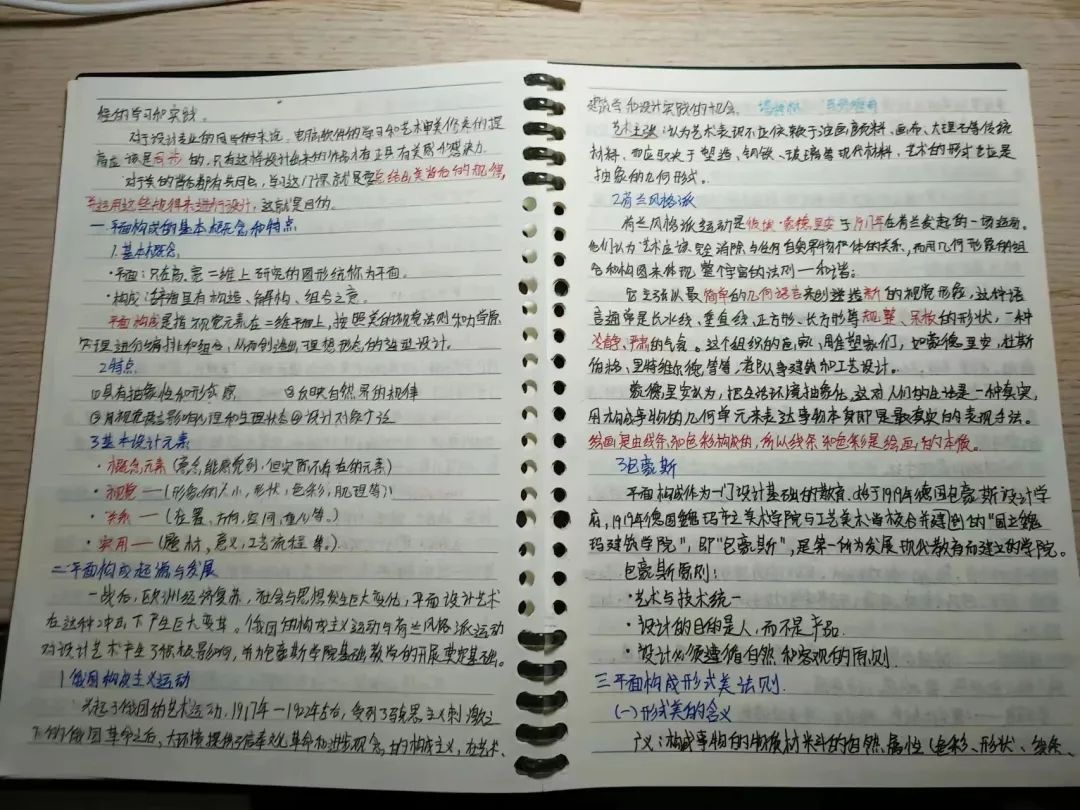 程的学习和实践。
对于设计专业的同学们来说,电脑软件的学习和艺术审美修养的提
高应该是同步的,只有这样设计出来的作品才有正具有美感和感染力
对于美的背后都有共同点,学习这门课就是要总结出美背后的规律,
并运用这些规律来进行设计,这就是目的。
一 平面构成的基本概念和特点
1.基本概念
·平面:只在高、宽二维上研究的图形统称为平面。
·构成:辞海里有构造、解构、组合之意。
平面构成是指视觉元素在二维平面上,按照美的视觉法则和力学原
理进行编排和组合,从而创造出理想形态的造型设计。
2.特点
①具有抽象性和形式感 ②反映自然界的规律
③用视觉语言影响心理和生理状态④设计对象个话
3.基本设计元素
·概念元素(意念能感觉到,但实际不存在的元素)
·视觉——(形象的大小,形状,色彩,肌理等)
·关系——(位置、方向,空间,重心等。)
·实用——(题材,意义,工艺流程等。)
二 平面构成起源与发展
一战后,欧洲经济复苏,社会与思想发生巨大变化,平面设计艺术
在这种冲击下产生巨大变革。俄国的构成主义运动与荷兰风格派运动
对设计艺术产生了积极影响,并为包豪斯学院基础教学的开展奠定基础。
1 俄国构成主义运动
兴起于俄国的艺术运动,1917年—1922年左右,受到了马克思主义刺激之
下的俄国革命之后,大环境提供了信奉文化革命和进步观念的构成主义,在艺术、
建筑学和设计实践的机会。
艺术主张:认为艺术表现不应依赖于油画颜料、画布、大理石等传统
材料,而应取决于塑造、钢铁、玻璃等现代材料,艺术的形式也应是
抽象的几何形式。
2.荷兰风格派
荷兰风格派运动是彼埃·蒙德里安于1917年在荷兰发起的一场运动。
他们认为艺术应该完全消除与任何自然界物体的关系,而用几何形象的组
合和构图来体现整个宇宙的法则—和谐。
它主张以最简单的几何语言来创造造新的视觉形象,这种语
言通常是长水线、垂直线、正方形、长方形等规整、呆板的形状,一种
冷静、严肃的气息。这个组织的画家、雕塑家们,如蒙德里安,杜斯
伯格、里特维尔德等等,都从事建筑加工艺设计。
蒙德里安认为,把生活环境抽象化,这对人们的生活是一种真实,
用构成事物的几何单元来表达事物本身即是最真实的表现手法。
绘画是由线条和色彩构成的,所以线条和色彩是绘画的本质。
3包豪斯
平面构成作为一门设计基础的教育,始于1919年德国包豪斯设计学
府,1919年德国魏玛市立美术学院与工艺美术学校合并建创的"国立魏
玛建筑学院",即"包豪斯",是第一所为发展现代教育而建立的学院。
包豪斯原则:
·艺术与技术统一
·设计的目的是人,而不是产品.
·设计必须遵循自然和客观的原则.
三 平面构成形式美法则.
(一)形式美的含义
广义:构成事物的物质材料的自然属性(色彩、形状、线条、